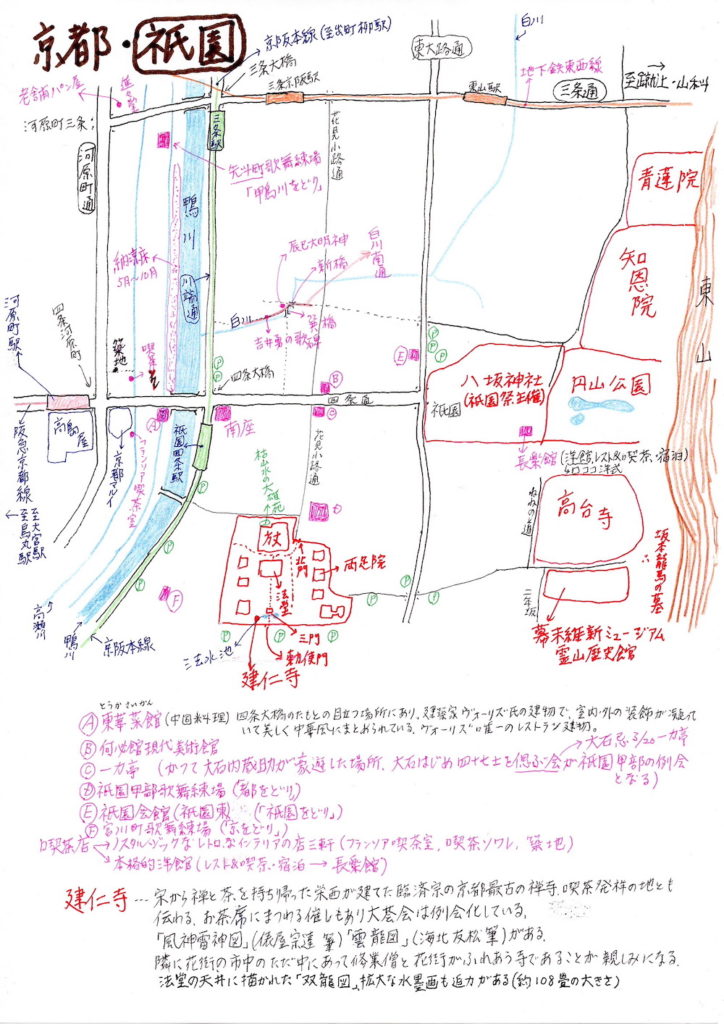 京都・祇園
京阪本線(至出町柳駅)
三条大橋
三条京阪駅
東大路通
白川
地下鉄東西線
東山駅
三条通
至蹴上・山科
老舗パン屋
進々堂
河原町三条
河原町通
三条駅
花見小路通
先斗町歌舞練場
「鴨川をどり」
鴨川
川端通
納涼床
5月〜10月
辰巳大明神
新橋
白川南通
白川
巽橋
吉井勇の歌碑
青蓮院
知恩院
東山
河原町駅
四条河原町
築地
喫茶
四条大橋
P
P
P
P
P
E
B
八坂神社
(祇園祭主催)
祇園
円山公園
四条通
高島屋
京都マルイ
フランソア喫茶室
A
祇園四条駅
南座
C
花見小路通
枯山水の大雄苑
D
長楽館(洋館、レスト&喫茶・宿泊)
ロココ洋式
ねねの道
高台寺
坂本龍馬の墓
阪急京都線
至大宮駅
至烏丸駅
P
放
北門
両足院
法堂
三門
勅使門
三去水池
建仁寺
P
F
P
P
P
P
P
二年坂
幕末維新ミュージアム
霊山歴史館
高瀬川
鴨川
京阪本線
とうかさいかん
A 東華菜館(中国料理) 四条大橋のたもとの目立つ場所にあり、建築家ヴォーリズ氏の建物で、室内・外の装飾が凝って
いて美しく中華風にまとめられている。ヴォーリズ唯一のレストラン建物。
B 何必館現代美術館
大石忌3/20一力亭
C 一力亭 (かつて大石内蔵助が豪遊した場所、大石はじめ四十七士を偲ぶ会が祇園甲部の例会
となる)
D 祇園甲部歌舞練場(都をどり)
E 祇園会館(祇園東)(「祇園をどり」)
F 宮川町歌舞練場(「京をどり」)
喫茶店→ノスタルジックなレトロなインテリアの店三軒(フランソア喫茶室、喫茶ソワレ、築地)
→本格的洋館(レスト&喫茶・宿泊→長楽館)
建仁寺…宋から禅と茶を持ち帰った栄西が建てた臨済宗の京都最古の禅寺。喫茶発祥の地とも
伝わる。お茶席にまつわる催しもあり大茶会は例会化している。
「風神雷神図」(俵屋宗達筆)「雲龍図」(海北友松筆)がある。
隣に花街の市中のただ中にあって修業僧と花街がふれあう寺であることが親しみになる。
法堂の天井に描かれた「双龍図」、拡大な水墨画も迫力がある(約108畳の大きさ)